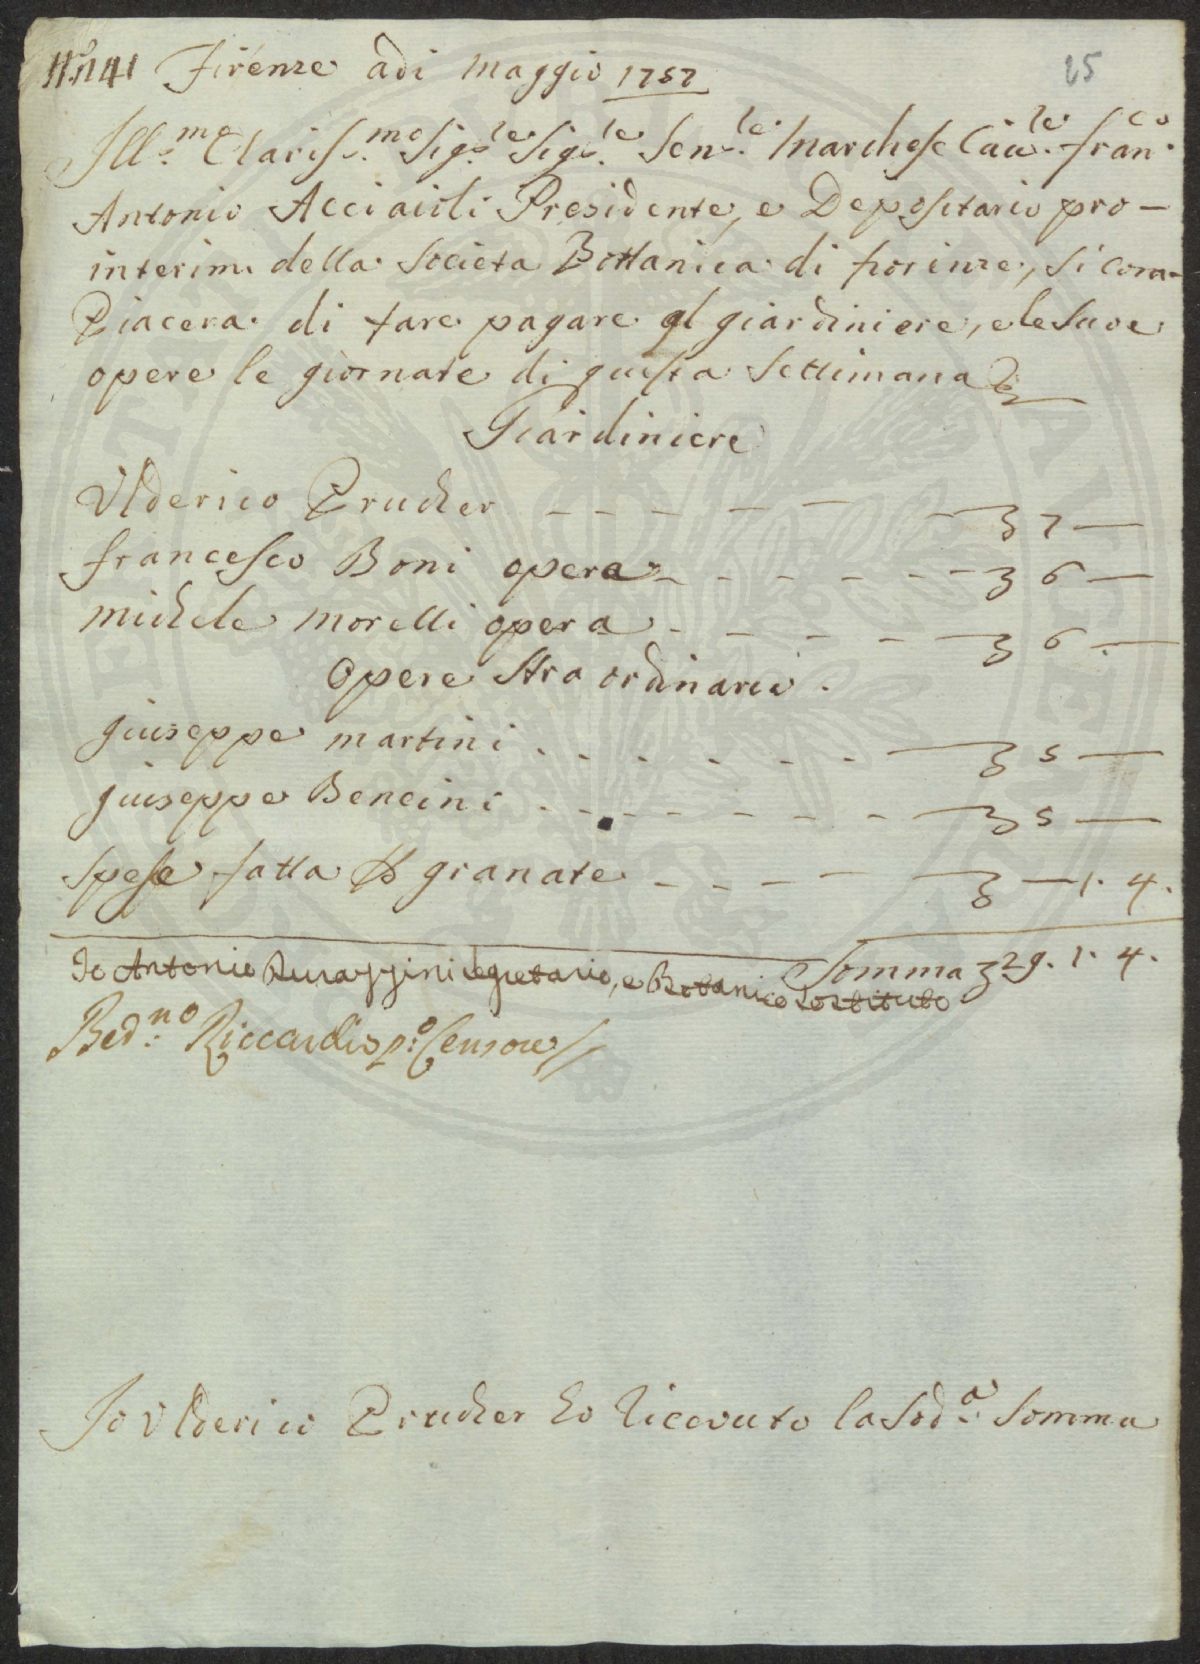 N.o 141 Firenze adi maggio 1757
25
Ill.mo Clariss.mo Sig.le Sig.le Sen.le Marchese Cau.le Fran.co
Antonio Acciaioli Presidente, e Depositario pro-
interim della Societa Bottanica di fiorinze, si com-
Piacera di fare pagare al giardiniere, e le sue
opere le giornate di questa Settimana
Giardiniere
Ulderico Prucher 7 —
francesco Boni opera 6 —
michele morelli opera 6 —
Opere stra ordinarie.
giuseppe martini 5 —
giuseppe Bencini 5 —
spese fatta granate — 1. 4.
Somma 29. 1. 4.
Io Antonio Durazzini segretario, e Botanico sostituto
Bed.no Riccardi p.o Censore
Io Ulderico Prucher ho riceuuto la sod.a Somma